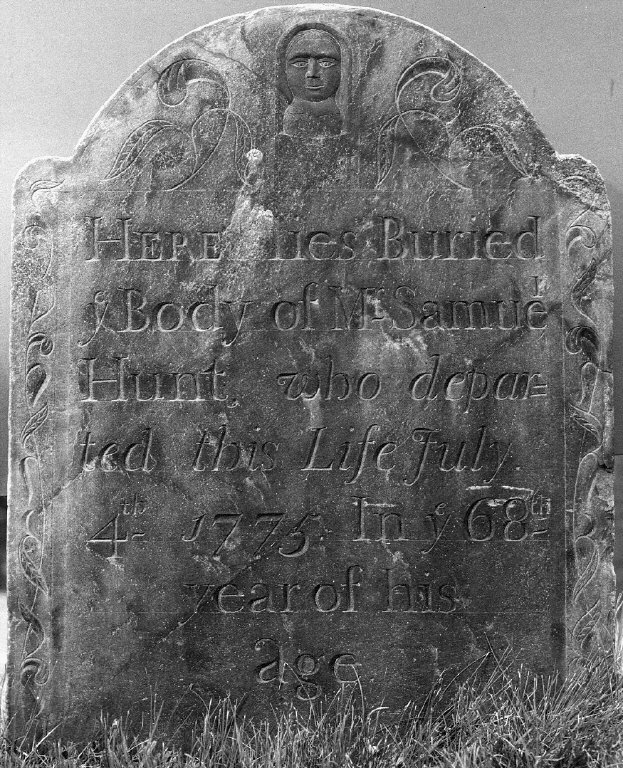 HERE lies Buried
yᵉ Body of Mʳ Samueˡ
Hunt, who depar=
ted this Life July.
4ᵗʰ 1775. In yᵉ 68ᵗʰ
year of his
age